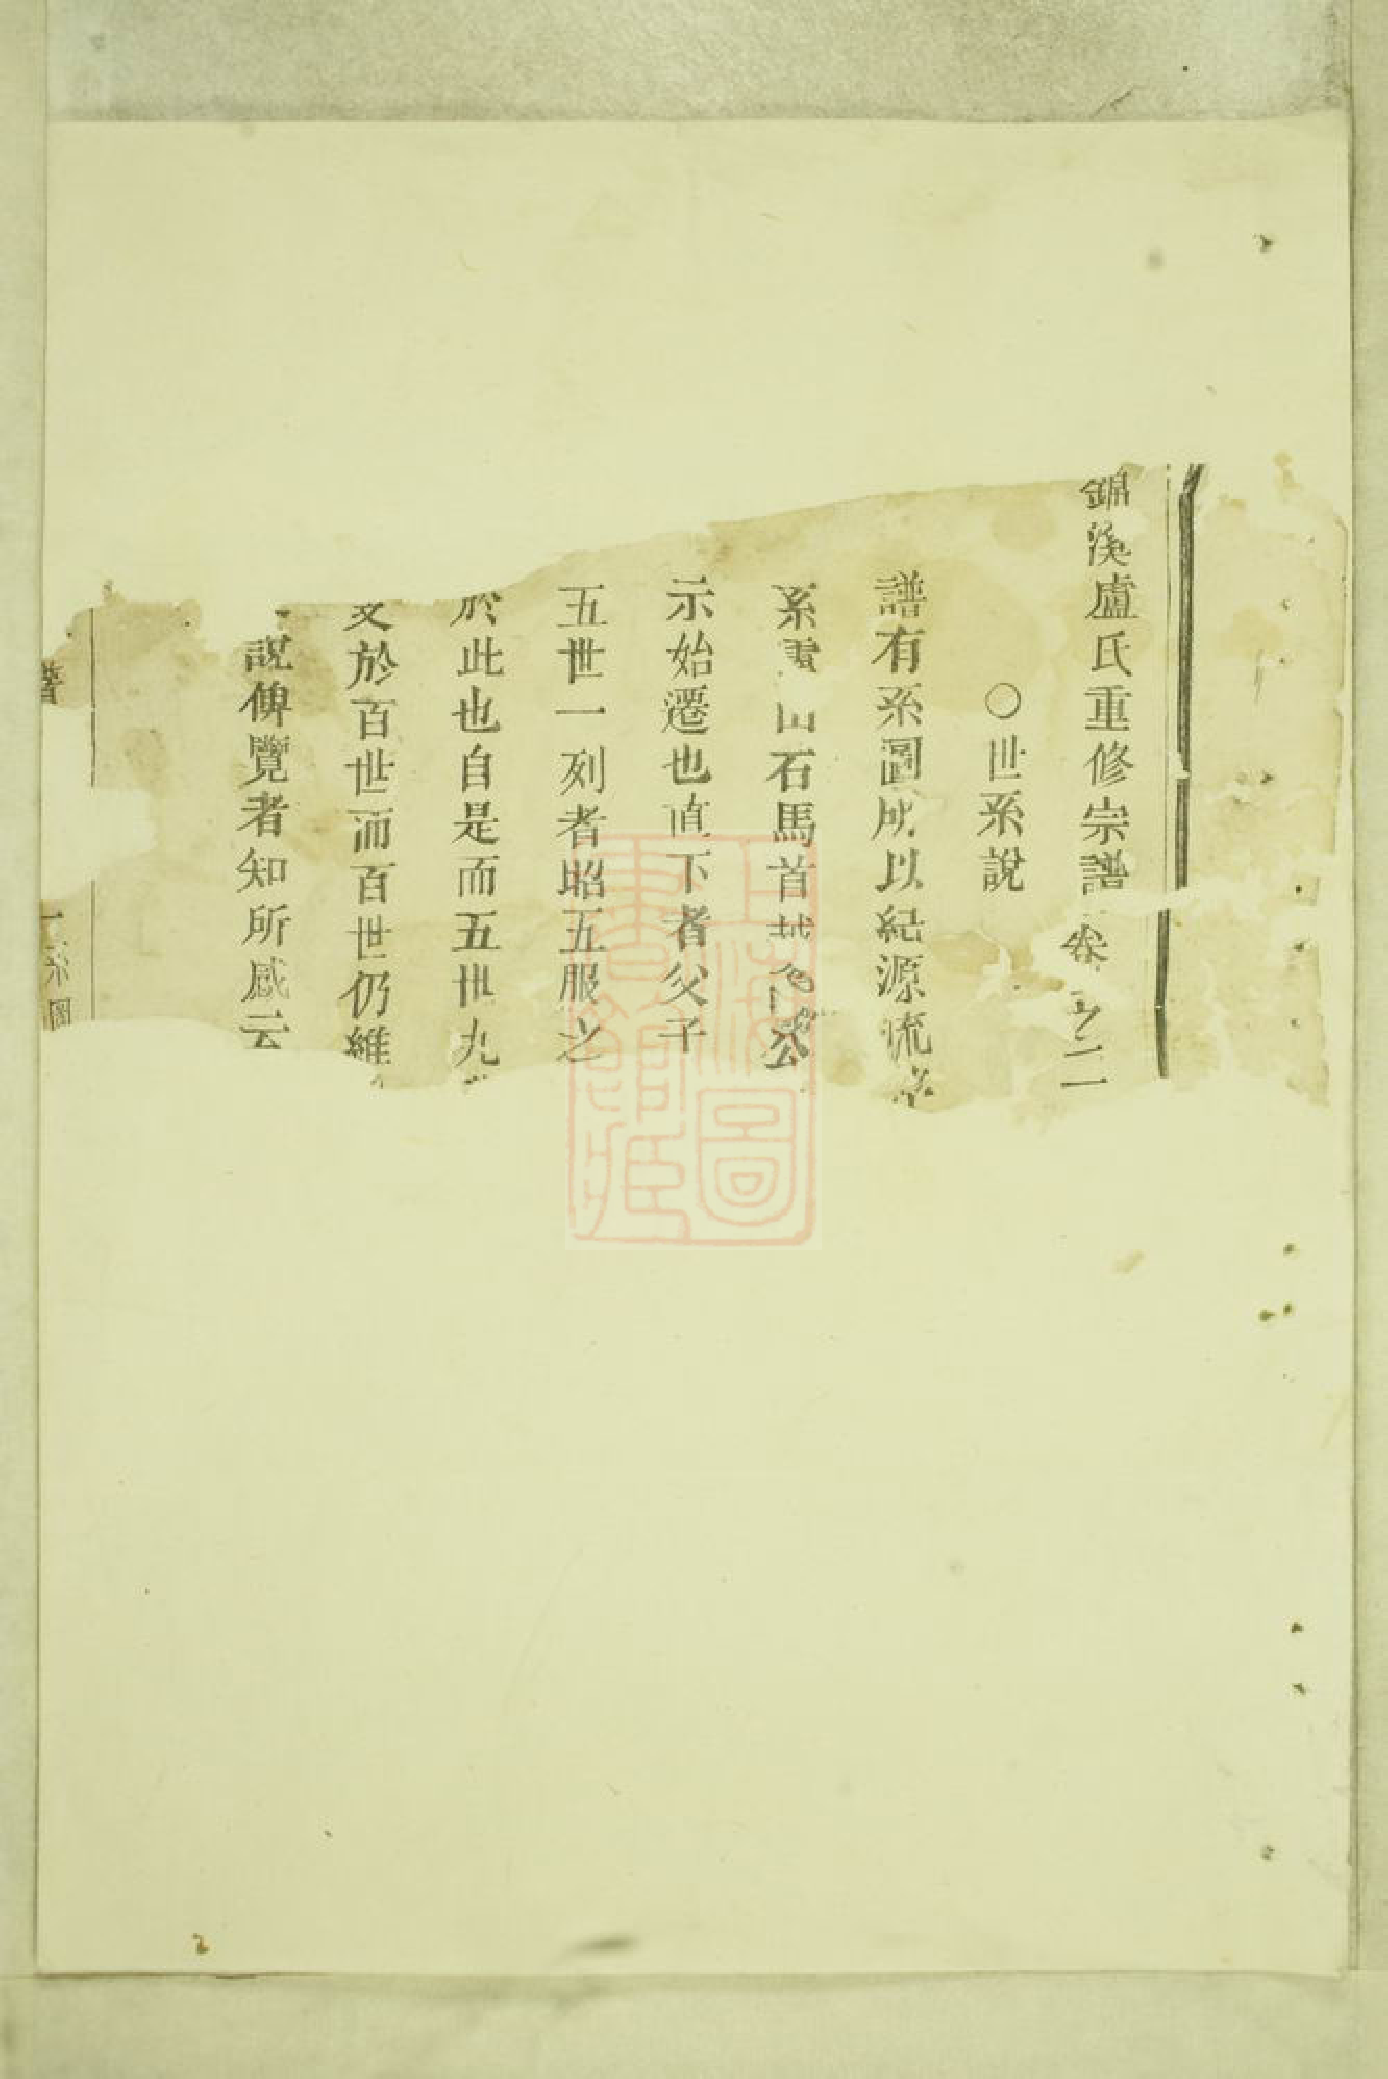 錦溪盧氏重修宗譜卷之二
○世系說
譜有系圖所以紀源流
系 石馬首 公
示始遷也直下者父子
五世一列者昭五服之
於此也自是而五世九
於百世而百世仍維
說俾覽者知所感云
譜
系圖
上海圖書館藏